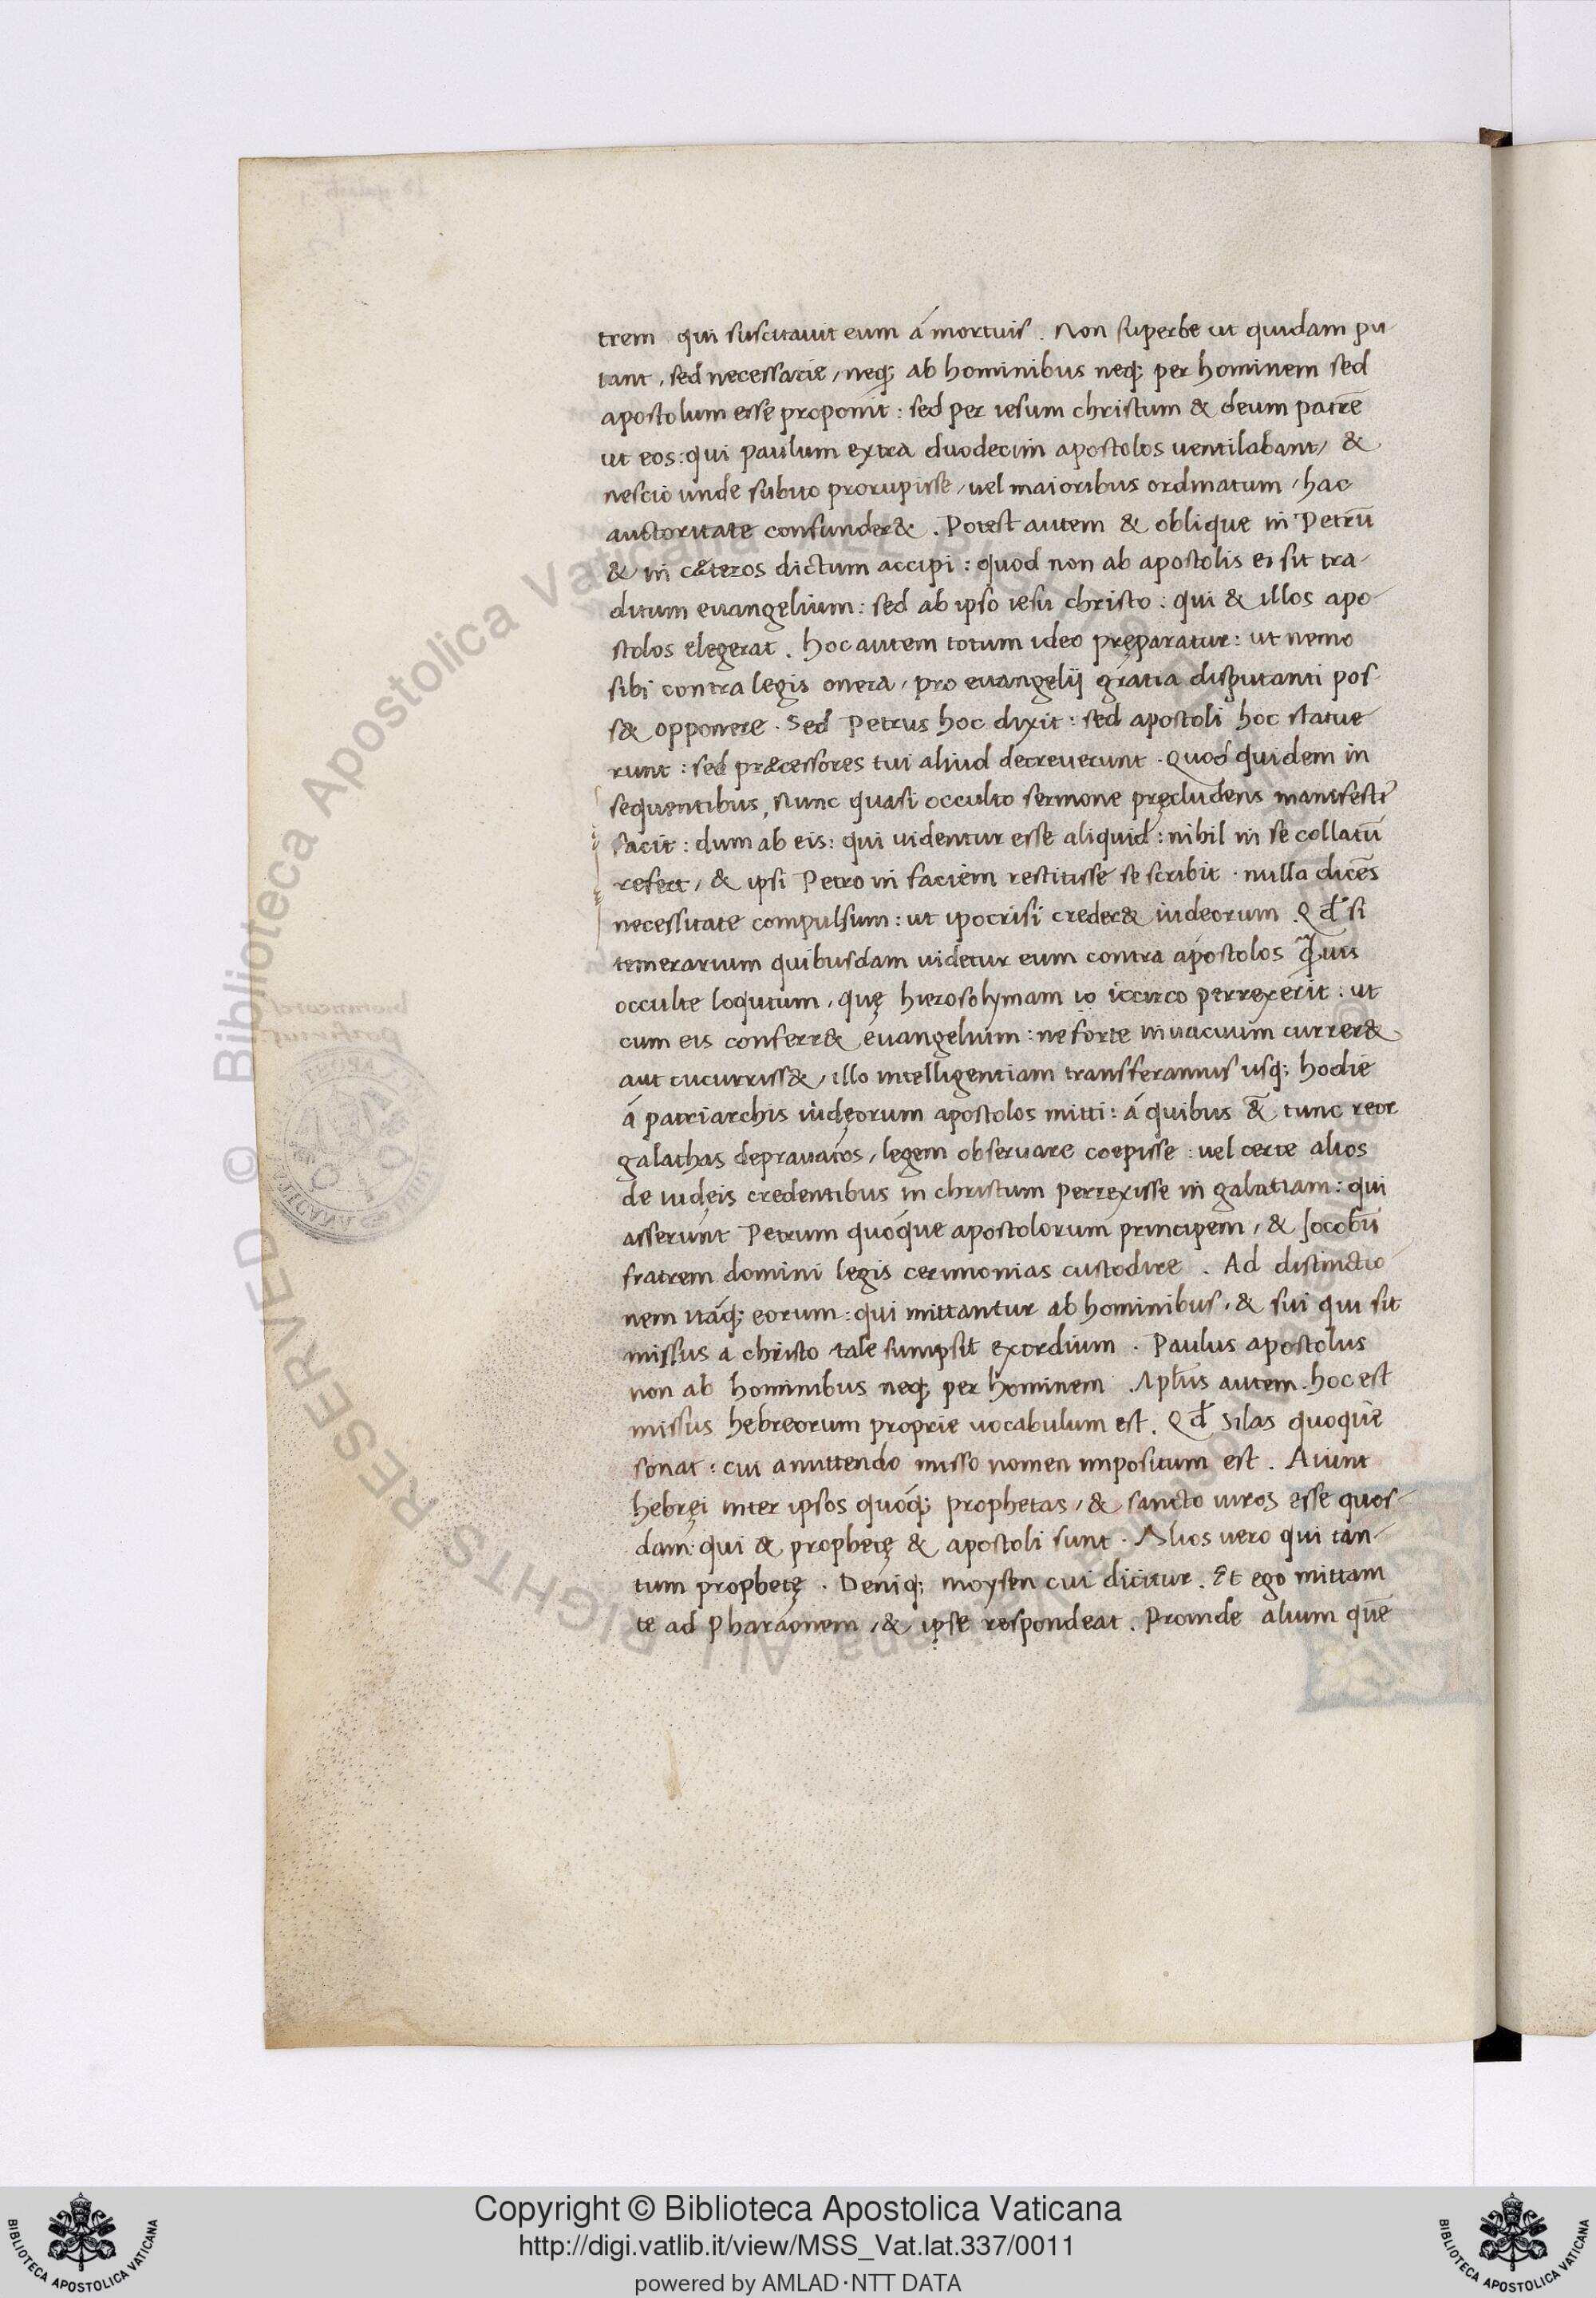 trem qui suscitauit eum á mortuis. Non superbe ut quidam pu-
tant, sed necessarie, neq; ab hominibus neq; per hominem sed
apostolum esse proponit: sed per iesum christum & deum patrē
ut eos: qui Paulum extra duodecim apostolos uentilabant, &
nescio unde subito prorupisse, uel maioribus ordinatum, hac
auctoritate confunder&. Potest autem & oblique in Petrū
& in c&teros dictum accipi: quod non ab apostolis ei sit tra-
ditum euangelium: sed ab ipso iesu christo: qui & illos apo-
stolos elegerat. hoc autem totum ideo pręparatur: ut nemo
sibi contra legis onera, pro euangelij gratia disputanti pos-
s& opponere. Sed Petrus hoc dixit: sed apostoli hoc statue-
runt: sed præcessores tui aliud decreuerunt. Quod quidem in
sequentibus, Nunc quasi occulto sermone pręcludens manifesti°
facit: dum ab eis: qui uidentur esse aliquid: nihil in se collatū
refert, & ipsi Petro in faciem restitisse se scribit. nulla dicēs
necessitate compulsum: ut ipocrisi creder& iudeorum. Qđ si
temerarium quibusdam uidetur eum contra apostolos q̄uis
occulte loqutum, quę hierosolymam io iccirco perrexerit: ut
cum eis conferr& euangelium: ne forte in uacuum currer&
aut cucurriss&, illo intelligentiam transferamus usq; hodie
á patriarchis iudęorum apostolos mitti: á quibus &̄ tunc reor
galathas deprauatos, legem obseruare coepisse: uel certe alios
de iudęis credentibus in christum perrexisse in galatiam: qui
asserunt Petrum quóque apostolorum principem, & Jocobū
fratrem domini legis cerimonias custodire. Ad distinctio-
nem itáq; eorum: qui mittantur ab hominibus, & sui qui sit
missus a christo tale sumpsit exordium. Paulus apostolus
non ab hominibus neq; per hominem. Apl̄us autem. hoc est
missus hebreorum proprie uocabulum est. Qđ Silas quoque
sonat: cui a mittendo misso nomen impositum est. Aiunt
hebręi inter ipsos quóq; prophetas, & sancto uiros esse quos-
dam: qui & prophetę & apostoli sunt. Alios uero qui tan-
tum prophetę. Deniq; moysen cui dicitur. Et ego mittam
te ad Pharaonem, & ipse respondeat. Proinde alium quē
© Biblioteca Apostolica Vaticana ALL RIGHTS RESERVED
Copyright © Biblioteca Apostolica Vaticana
http://digi.vatlib.it/view/MSS_Vat.lat.337/0011
powered by AMLAD·NTT DATA
BIBLIOTECA APOSTOLICA VATICANA
BIBLIOTECA APOSTOLICA VATICANA